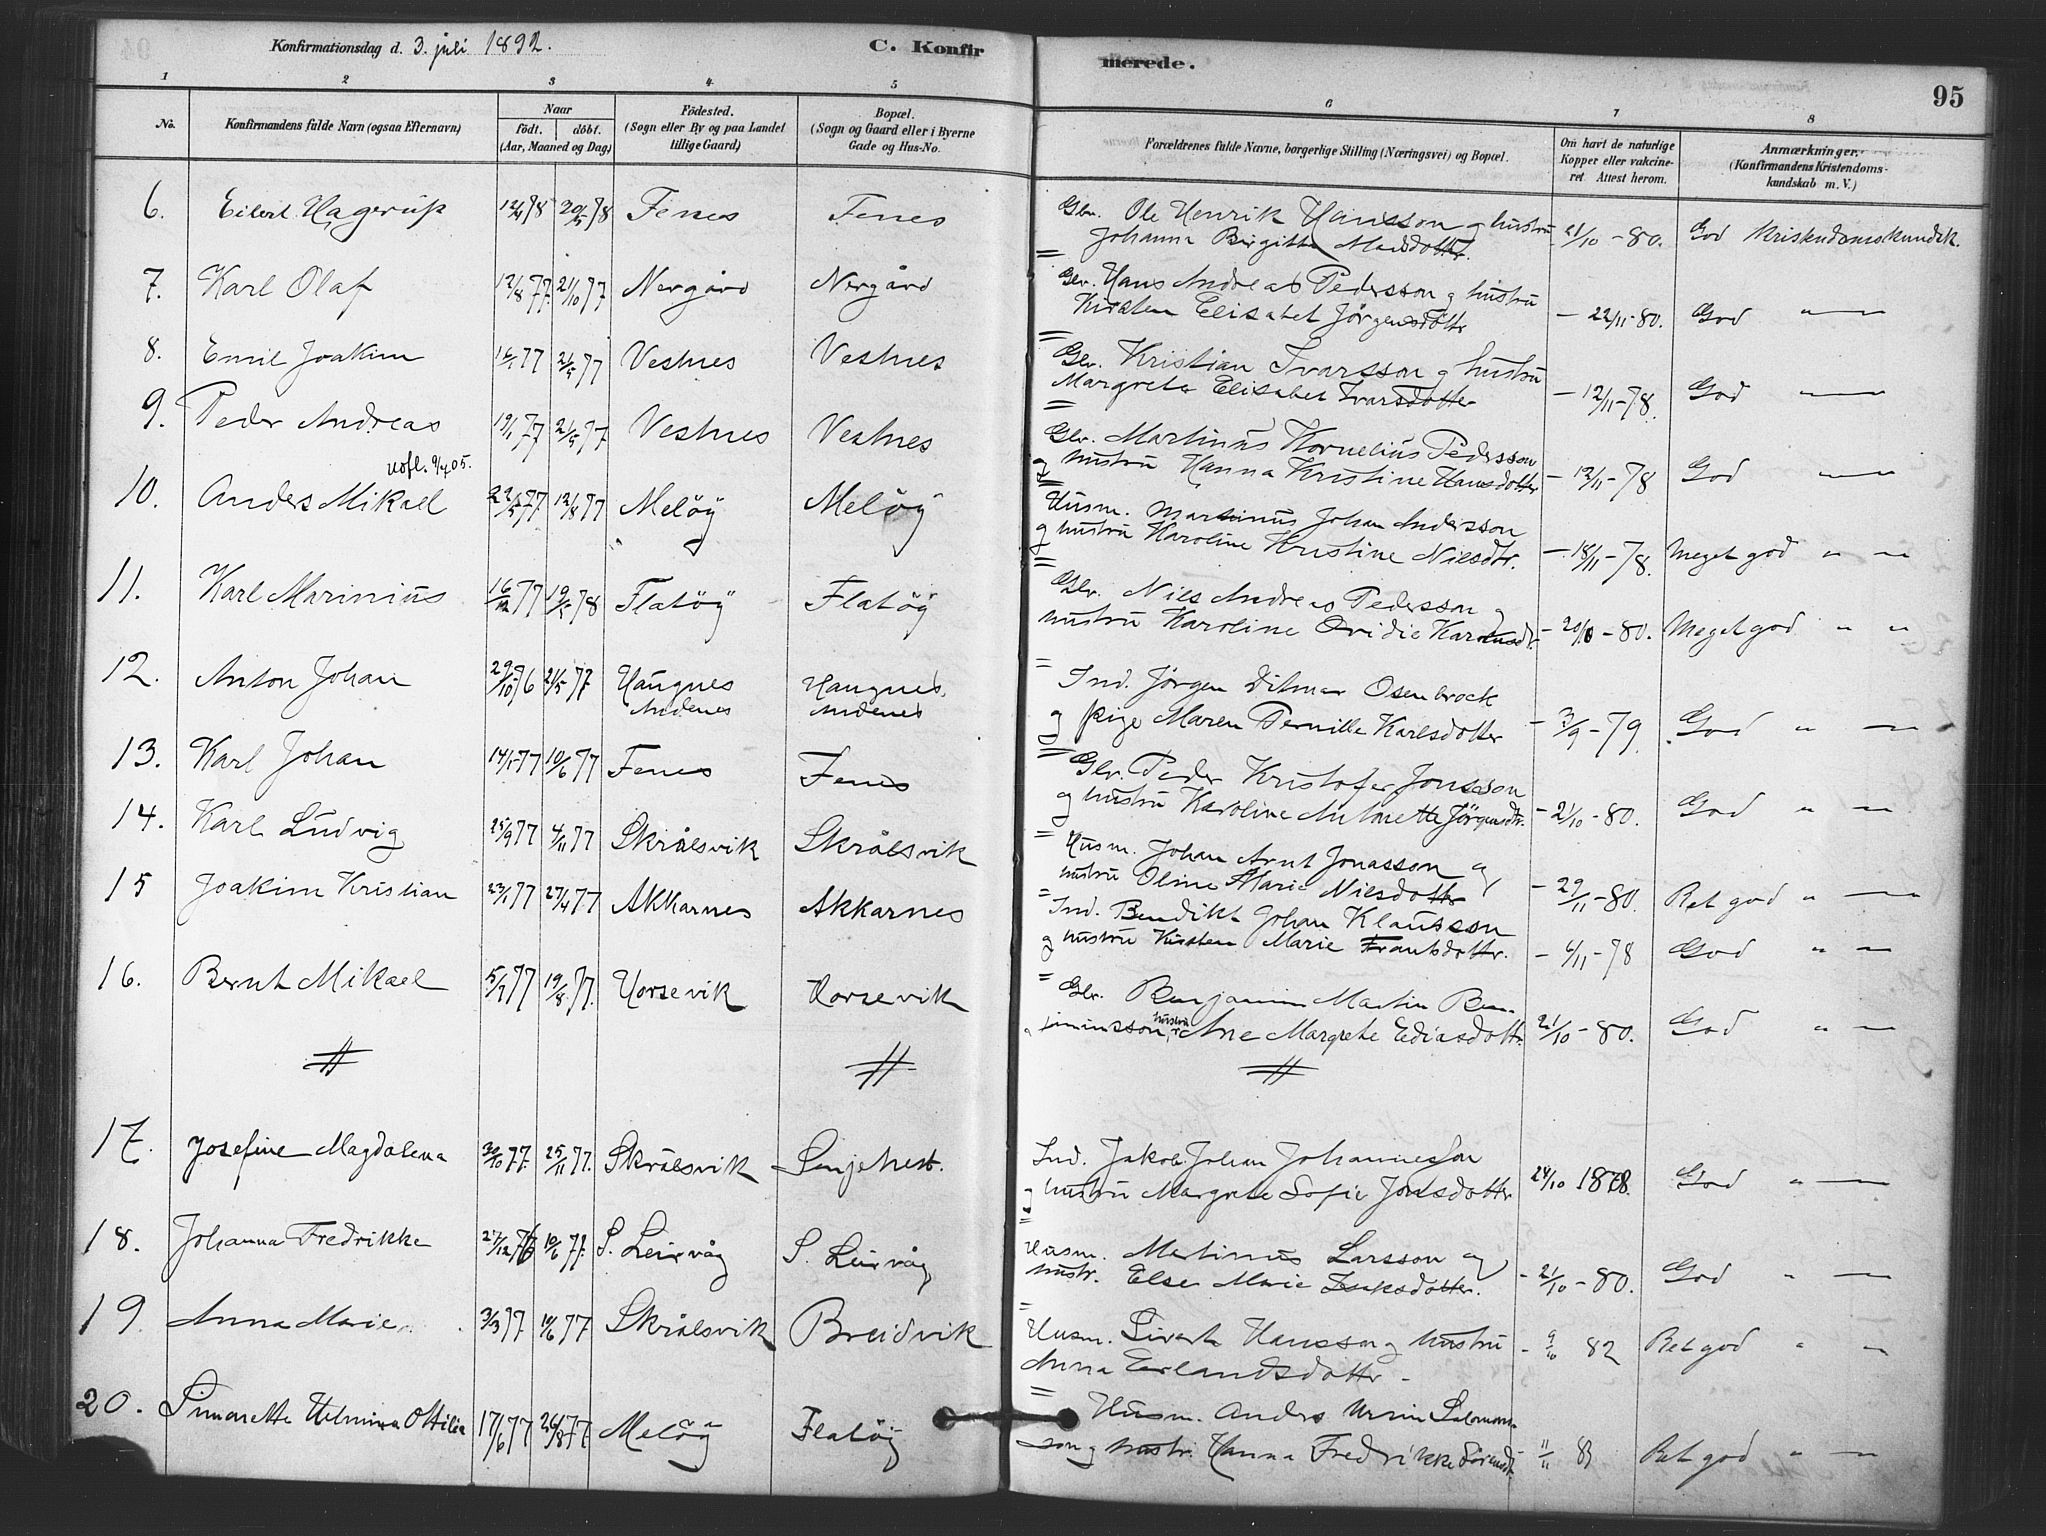 Konfirmationsdag d. 3. juli 1892.
C. Konfirmerede.
95
1 2 3 4 5 6 7 8
No.
Konfirmandens fulde Navn (ogsaa Efternavn)
Naar
födt. döbt.
(Aar, Maaned og Dag)
Födested.
(Sogn eller By og paa Landet
tillige Gaard)
Bopæl.
(Sogn og Gaard eller i Byerne
Gade og Hus-No.
Forældrenes fulde Navne, borgerlige Stilling (Næringsvei) og Bopæl.
Om havt de naturlige
Kopper eller vakcine-
ret Attest herom.
Anmærkninger.
(Konfirmandens Kristendoms-
kundskab m. V.)
6. Eilert Hagerup 12/4 78 20/5 78 Fenes Fenes Gbr. Ole Henrik Hansson og hustru
Johanna Birgitte Madsdotter. 21/10 - 80. God kristendomskundsk.
7. Karl Olaf 12/8 77. 21/10 77 Nergård Nergård Gbr. Hans Andreas Pedersson og hustru
Kirsten Elisabet Jörgensdotter — 22/11 - 80. God " —
8. Emil Joakim 77 2/5 77 Vestnes Vestnes Gbr. Kristian Ivarsson og hustru
Margrete Elisabet Ivarsdotter — 12/11 - 78. God " —
9. Peder Andreas 19/1 77 21/5 77 Vestnes Vestnes Gbr. Martinus Kornelius Pedersson
og hustru Hanna Kristine Hansdotter — 12/11 - 78 God " —
05.
10. Anders Mikael 22/5 77 12/8 77 Melöy Melöy Husm. Martinus Johan Andersson
og hustru Karoline Kristine Nilsdtr. — 18/11 - 78. Meget god " —
11. Karl Marinius 16/12 77 19/5 78 Flatöy Flatöy Gbr. Nils Andreas Pedersson og
hustru Karoline Ovidie - 20/10 - 80. Meget god " "
12. Anton Johan 29/10 76 21/5 77 Haugnes
Andenes Haugnes,
Andenes Ind. Jörgen Ditmar Osenbrock
og pige Maren Pernille Karlsdotter - 3/9 - 79. God " —
13. Karl Johan 14/1 77 10/6 77 Fenes Fenes Gbr. Peder Kristofer Jonsson
og hustru Karoline Antonette Jörgensdtr. - 21/10 - 80. God " —
14. Karl Ludvig 25/9 77 4/11 77 Skrålsvik Skrålsvik Husm. Johan Arnt Jonasson og
hustru Oline Marie Nilsdotter - 29/11 - 80. Ret god " —
15 Joakim Kristian 23/1 77 27/4 77 Akkarnes Akkarnes Ind. Bendikt Johan Klausson
og hustru Kirsten Marie Frantsdotter. - 6/11 - 78 God " —
16. Bernt Mikael 5/7 77 19/8 77. Horsevik Horsevik Gbr. Benjamin Martin Ben-
jaminsson, og hustru Ane Margrete Ediasdotter 21/10 - 80. God " —
17. Josefine Magdalena 30/10 77. 25/11 77. Skrålsvik Senjehest. Ind. Jakob Johan Johannesson
og hustru Margrete Sofie Jonsdotter 24/10 1878. God " —
18. Johanna Fredrikke 27/12 76 10/6 77. S. Leirvåg S. Leirvåg Husm. Martinus Larsson og
hustr. Else Marie Isaksdotter. - 21/10 - 80. God " —
19. Anna Marie. 3/3 77 10/6 77 Skrålsvik Breidvik Husm. Sivert Hansson og hustru
Anna Erlandsdotter - - 82 Ret god " "
20. Hilmina Ottilia 17/6 77 26/8 77 Melöy Flatöy Husm. Anders Ursin Salomons-
son og hustr. Hanna Fredrikke 11/11 Ret god " —